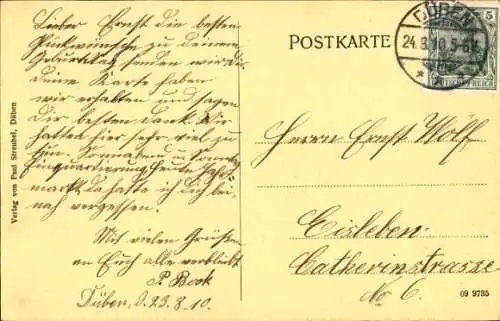 Lieber Ernst die besten
Glückwünsche zu deinem
Geburtstag senden wir dir
deine Karte haben
wir erhalten und sagen
Dir besten Dank. Wir
hatten hier sehr viel zu
tun. Sonnabend u. Sonntag
Einquartierung heute Jahr-
markt da hatte ich Dich bei-
nah vergessen.
Mit vielen Grüßen
an Euch alle verbleibt
P. Bock
Düben, d. 23.8.10.
Verlag von Paul Streubel, Düben
POSTKARTE
DÜBEN
24.8.10. 5-6V
5
DEUTSCHES REICH
Herrn Ernst Wölf
Eisleben
Catherinstrasse
No 6.
09 9735